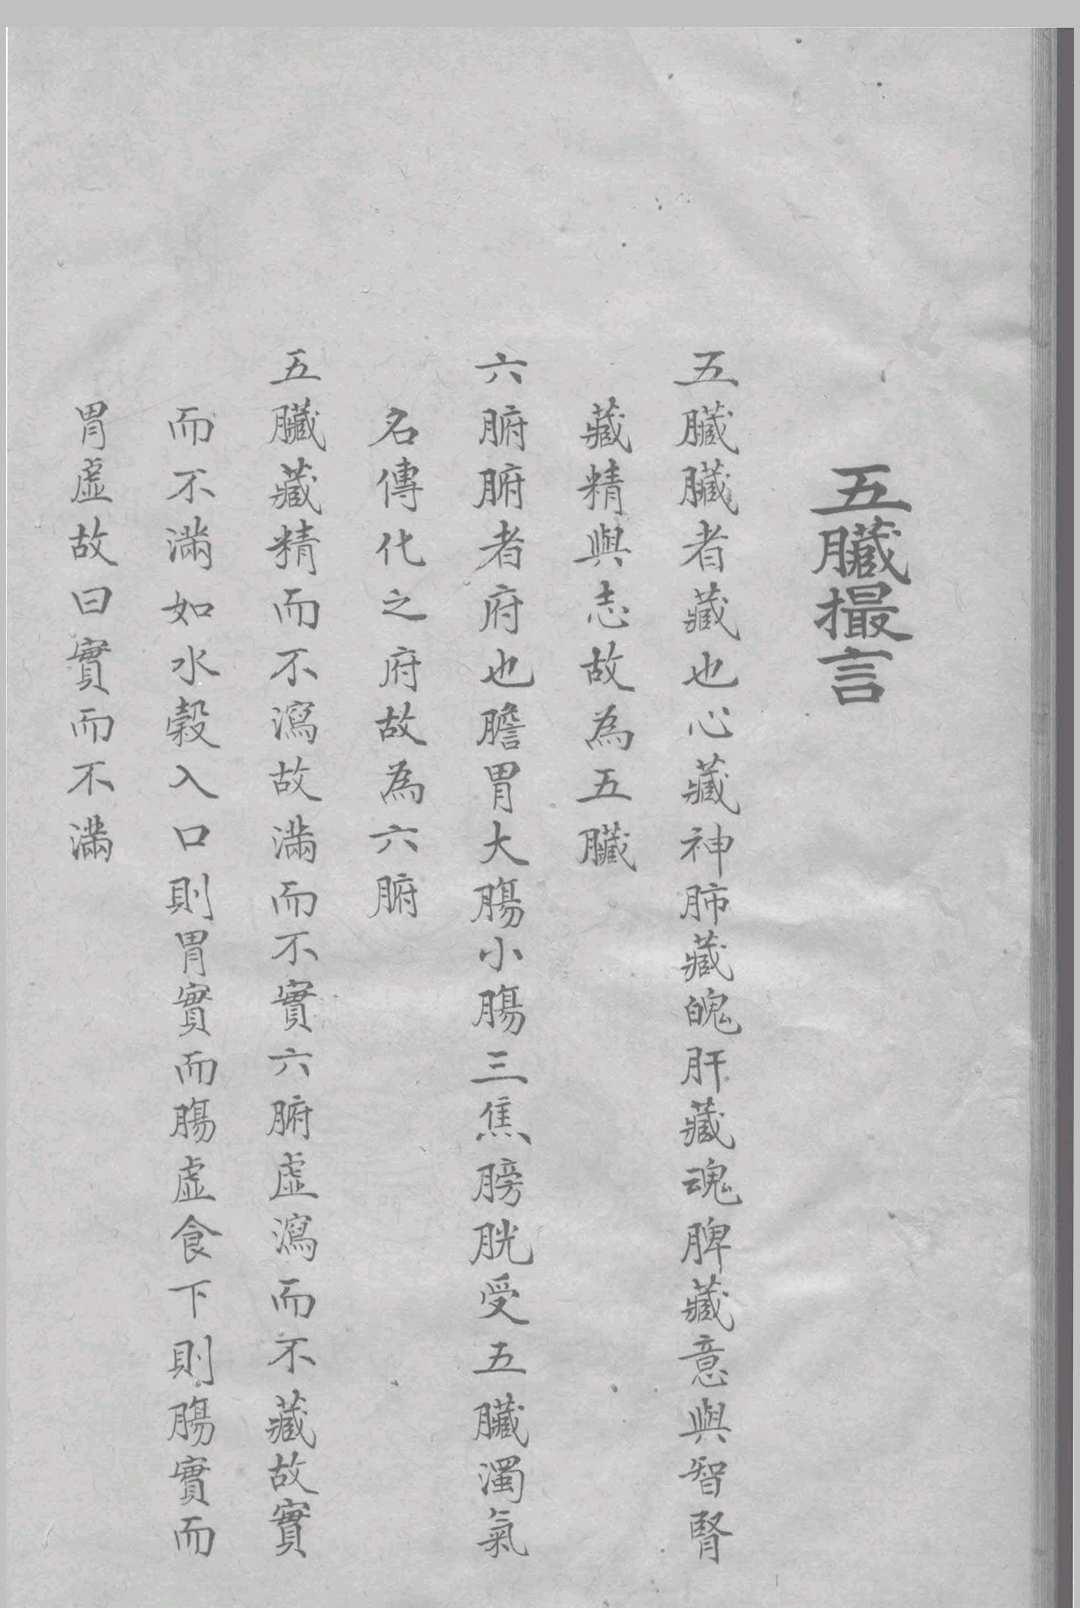 五臟撮言
五臟臟者藏也心藏神肺藏魄肝藏魂脾藏意與智腎
藏精與志故為五臟
六腑腑者府也膽胃大腸小腸三焦膀胱受五臟濁氣
名傳化之府故為六腑
五臟藏精而不瀉故滿而不實六腑虛瀉而不藏故實
而不滿如水穀入口則胃實而腸虛食下則腸實而
胃虛故曰實而不滿